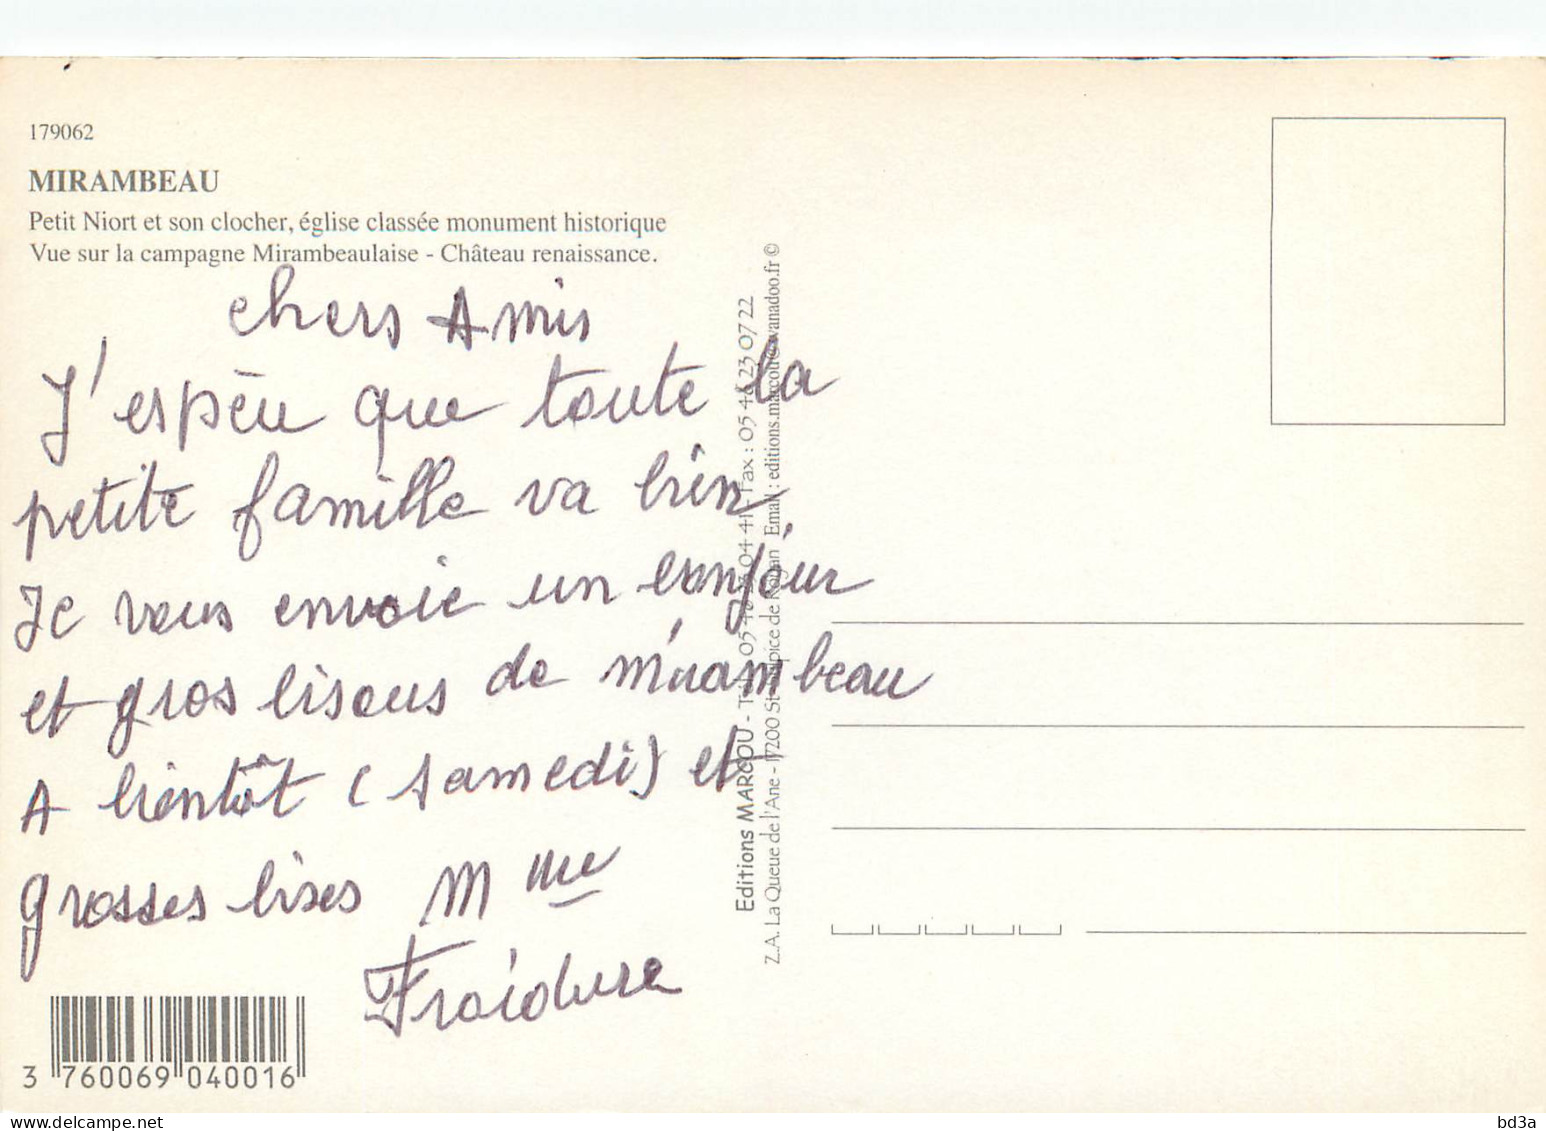 179062
MIRAMBEAU
Petit Niort et son clocher, église classée monument historique
Vue sur la campagne Mirambeaulaise - Château renaissance.
chers Amis
J'espèu que toute la
petite famille va bien
Je vous envoie un bonjour
et gros bisous de mirambeau
A bientôt (samedi) et
grosses bises Mme
Froidure
3 760069 040016
Editions MARCOU - 05 46 04 41 - Fax : 05 46 23 07 22
Z.A. La Queue de l'Ane - 17200 St-Sulpice de Royan Email : editions.marcou@wanadoo.fr ©
bd3a